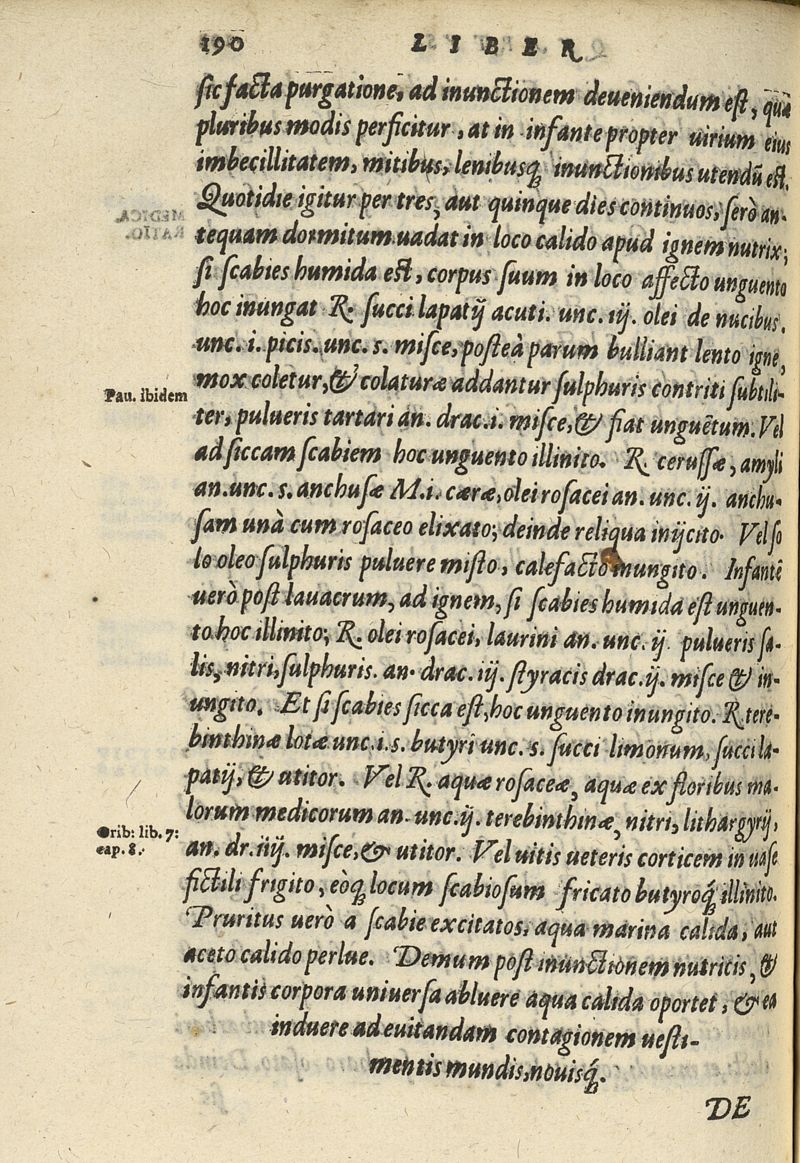 190 LIBER
sic facta purgatione, ad inunctionem deueniendum est, quã
pluribus modis perficitur, at in infante propter uirium eius
imbecillitatem, mitibus, lenibusq; inunctionibus utendũ est.
Quotidie igitur per tres, aut quinque dies continuos, serò an-
tequam dormitum uadat in loco calido apud ignem nutrix;
si scabies humida est, corpus suum in loco affecto unguento
hoc inungat ℞. succi lapatij acuti. unc. iij. olei de nucibus.
unc. i. picis. unc. s. misce, posteà parum bulliant lento igne,
Pau. ibidem
mox coletur, & colaturæ addantur sulphuris contriti subtili-
ter, pulueris tartari an. drac. i. misce, & fiat unguẽtum. Vel
ad siccam scabiem hoc unguento illinito. ℞. cerussæ, amyli
an. unc. s. anchusæ M. i. cæræ, olei rosacei an. unc. ij. anchu-
sam unà cum rosaceo elixato; deinde reliqua inijcito. Vel so
lo oleo sulphuris puluere misto, calefacto inungito. Infantẽ
uerò post lauacrum, ad ignem, si scabies humida est unguen-
to hoc illinito; ℞. olei rosacei, laurini an. unc. ij. pulueris sa-
lis, nitri, sulphuris. an. drac. iij. styracis drac. ij. misce & in-
ungito. Et si scabies sicca est, hoc unguento inungito. ℞. tere-
binthinæ lotæ unc. i. s. butyri unc. s. succi limonum, succi la-
patij, & utitor. Vel ℞. aquæ rosaceæ, aquæ ex floribus ma-
lorum medicorum an. unc. ij. terebinthinæ, nitri, lithargyrij,
Orib: lib. 7:
cap. 8.
an. dr. iiij. misce, & utitor. Vel uitis ueteris corticem in uase
fictili frigito, eòq; locum scabiosum fricato butyroq́; illinito.
Pruritus uerò a scabie excitatos, aqua marina calida, aut
aceto calido perlue. Demum post inunctionem nutricis, &
infantis corpora uniuersa abluere aqua calida oportet, & ea
induere ad euitandam contagionem uesti-
mentis mundis, nouisq́;.
DE